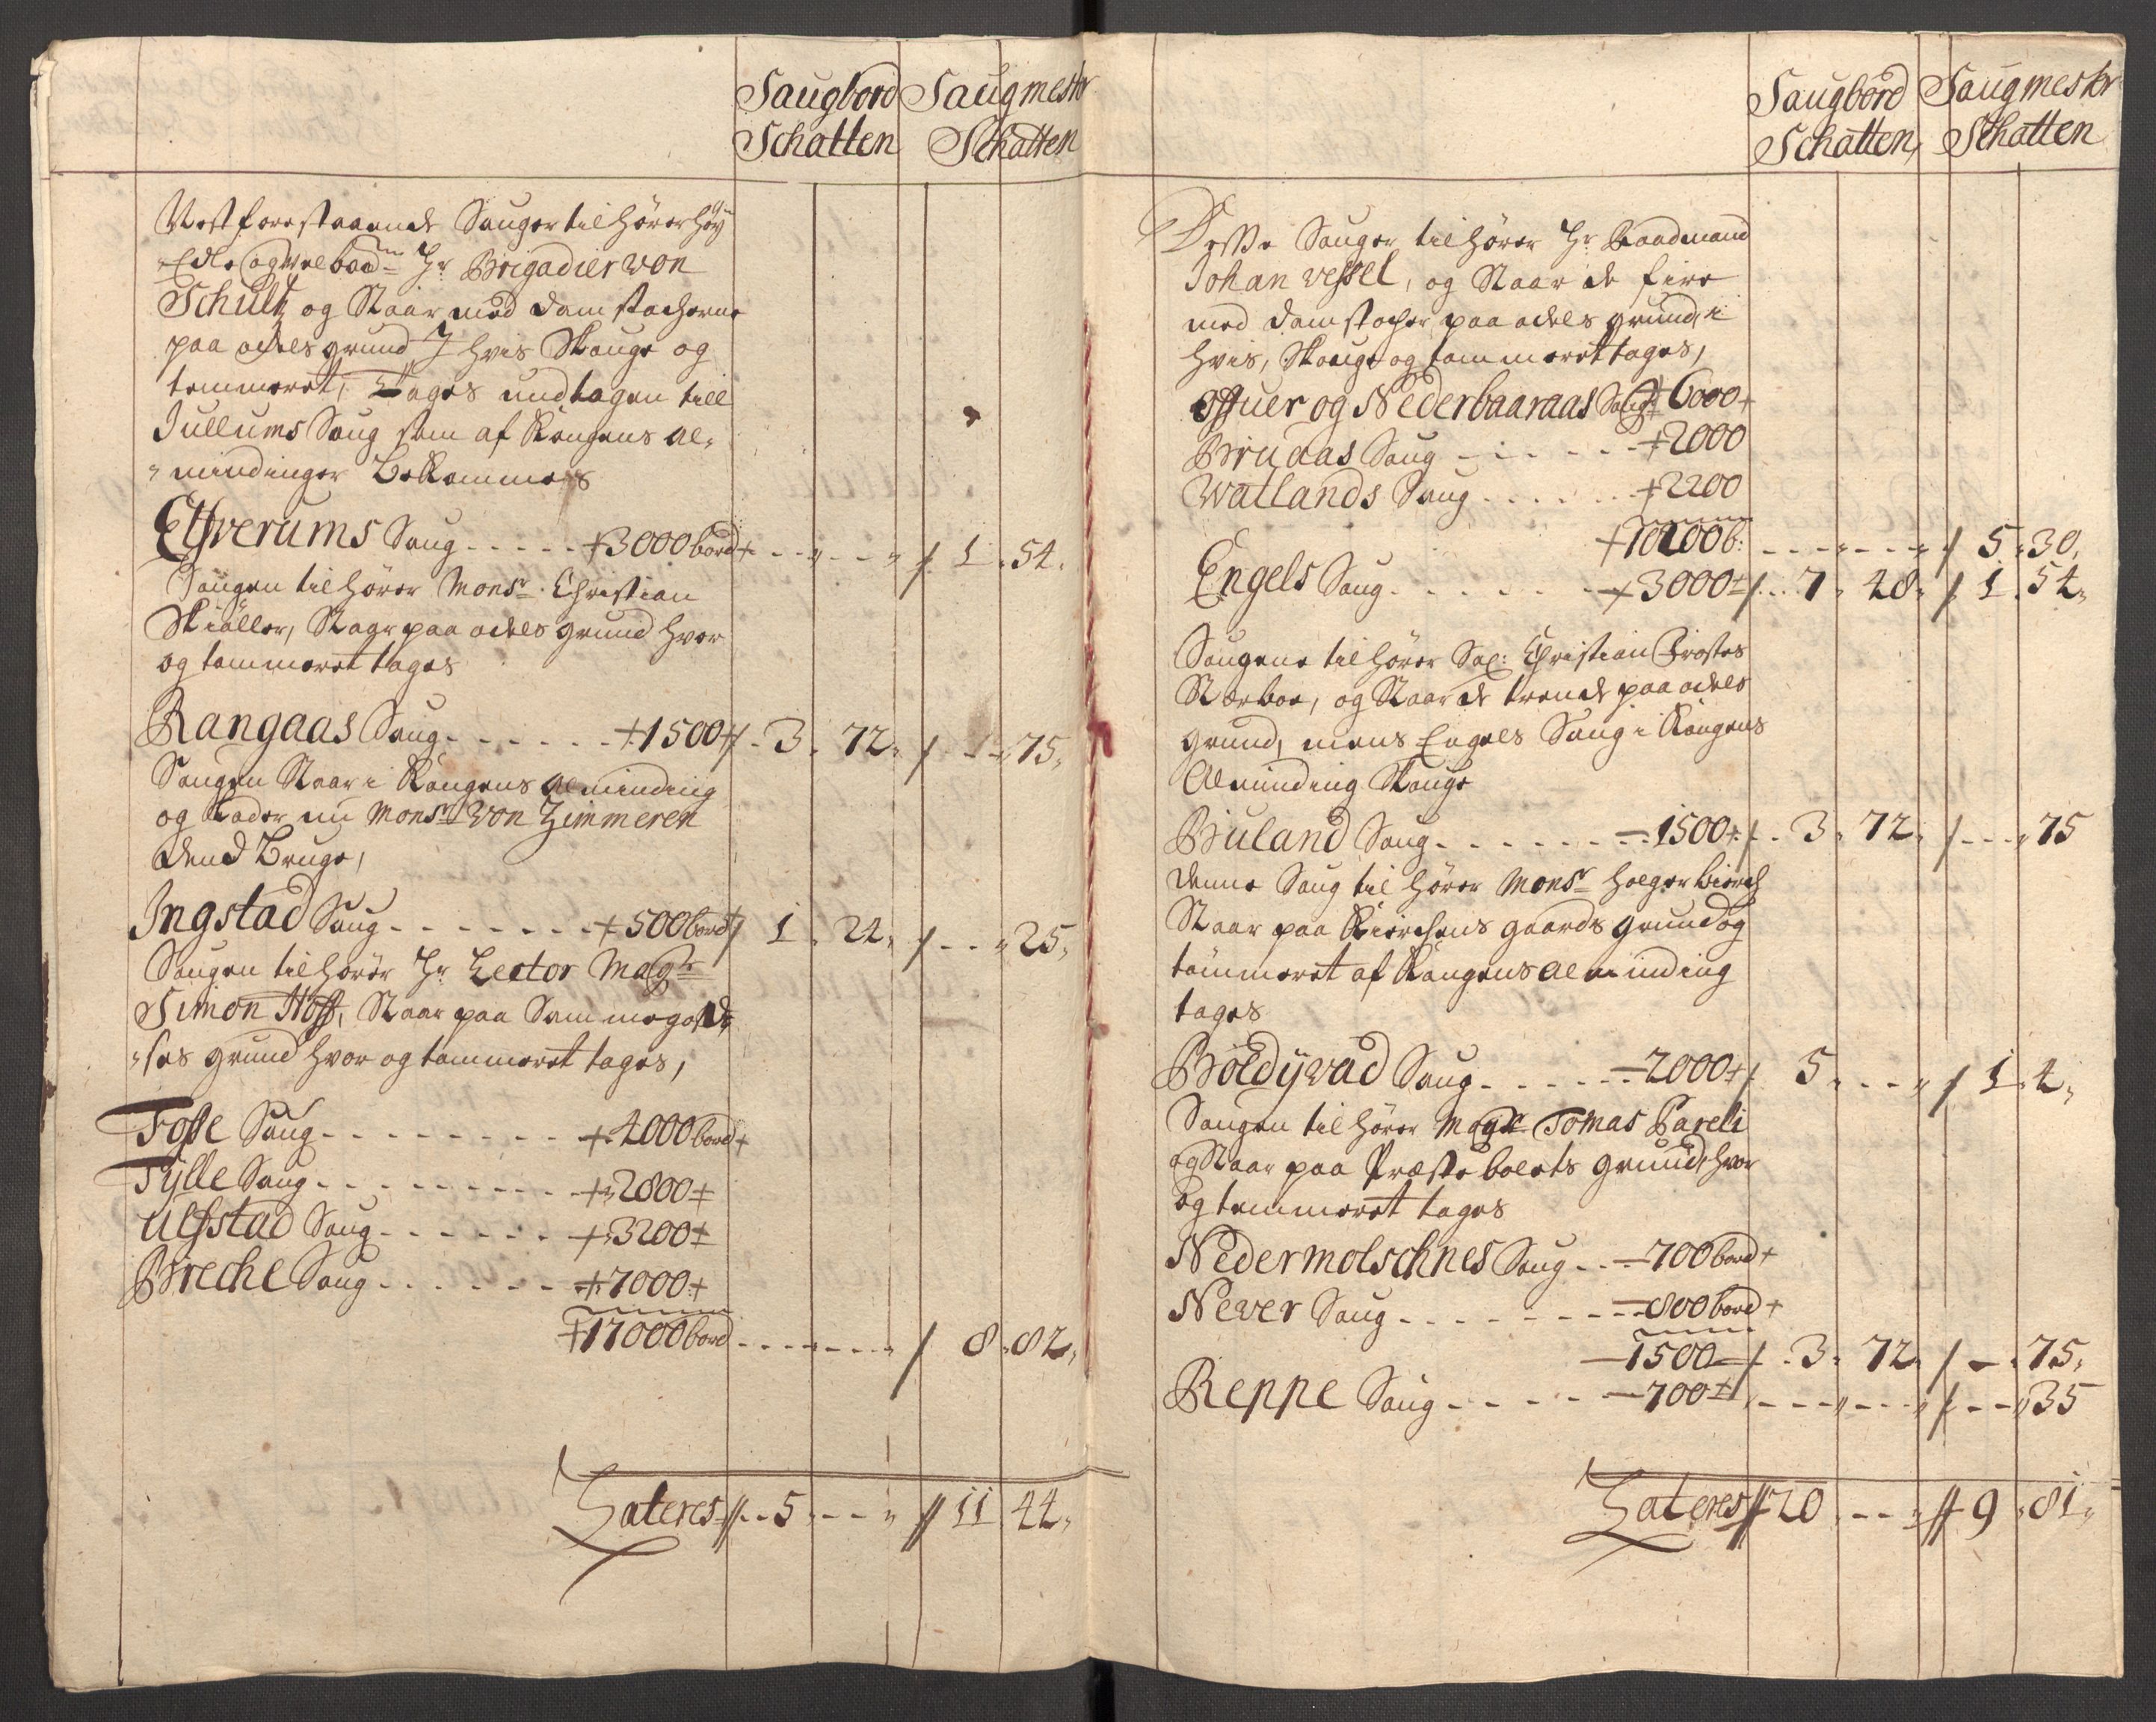 Saugbord Saugmestr
Schatten Schatten
Nestforestaaende Sauger tilhører høy
Edle og welbør: Hr Brigadier von
Schultz og Staar med damstocherne
paa odels grund J hvis Skouge og
temmeret, tages undtagen till
Jullums Saug som af Kongens al,
mindinger Bekommes
Elfverums Saug - - - - - + 3000 bord + - - - - " / 1 . 54 .
Saugen tilhører Monsr. Christian
Skiøller, Staar paa odels grund hvor
og temmeret tages
Rangaas Saug - - - - - - + 1500 + / - 3 . 72 " / - - - " 75 "
Saugen Staar i Kongens alminding
og lader nu Monsr von Zimmeren
dend Bruge,
Ingstad Saug - - - - - - - + 500 bord + / 1 . 24 " / - - " 25 "
Saugen tilhører Hr Lector Magr
Simon Hoff, Staar paa Sammegods
ses grund hvor og tømmeret tages,
Fosse Saug - - - - - - - - + 4000 bord +
Fylle Saug - - - - - - - - - + 2800 +
Ulfstad Saug - - - - - - + 3200 +
Breche Saug - - - - - - + 7000 +
+ 17000 bord - - - - - - " / 8 . 82 "
Lateres // - - 5 . - - - " // 11 . 44 "
Saugbord Saugmestr
Schatten, Schatten
Disse Sauger tilhører Hr Raadmand
Johan vessel, og Staar de fire
med damstocher paa odels grund i
hvis, Skouge og tommeret tages,
offuer og Nederbaaraas Saug + 6000 +
Bruaas Saug - - - - - - + 2000
Watlands Saug - - - - - + 2200
+ 10200 b: - - - - - - " / 5 " 30 "
Engels Saug - - - - - - - + 3000 + / . . 7 . 48 " / 1 . 54 "
Saugene tilhører Sal: Christian Frostes
Stærboe, og Staar de trende paa odels
grund, mens Engels Saug i Kongens
Alminding Skouge
Buland Saug - - - - - - - - - 1500 + / - . 3 . 72 " / - - - " 75
denne Saug tilhører Monsr Holger Bierch
Staar paa Kierchens gaards grund og
tømmeret af Kongens alminding
tages
Bøldyvad Saug - - - - - - 2000 + / . 5 . - - " / 1 . 4 "
Saugen tilhører Magr Tomas Pareli
og Staar paa Præste boelets grund, hvor
og temmeret tages
Nedermolschnes Saug - - - 700 bord +
Never Saug - - - - - - - - 800 bord +
- 1500 - / . 3 . 72 " / - . 75 "
Reppe Saug - - - - - 700 + - - - - " - - - " / - - " 35
Lateres // 20 . - - - " // 9 . 81 "